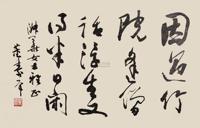 因過竹
院逢僧
話浮生又
得半日閑
女士雅正